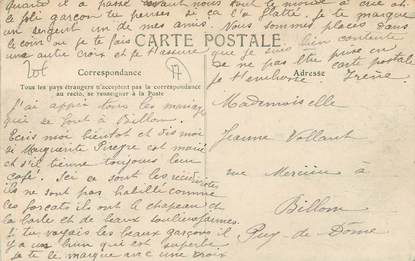 Quand il a passé devant nous tout le monde a crié ah
le joli garçon tu penses si ça l'a flatté. Je te marque
un sergent un de mes amis. Nous sommes placés dans
le coin où je te fais
une autre croix et je t'assure
que je suis bien contente
de ne pas être prise en
carte postale
Je t'embrasse. Irène
CARTE POSTALE
Correspondance
Tous les pays étrangers n'acceptent pas la correspondance
au recto, se renseigner à la Poste
Adresse
J'ai appris tous les mariages
qui se font à Billom.
Ecris moi bientôt et dis moi
si Marguerite est marié
et s'il tienne toujours leur
café. Ici ce sont les
ils ne sont pas habillé comme
ces forcats ils ont le chapeau et
la botte et de beaux souliers jaunes.
Si tu voyais les beaux garçons il
y a un brun qui est superbe
Je te le marque avec une croix
Mademoiselle
Jeanne Vollant
rue Mercière à
Billom
Puy-de-Dôme